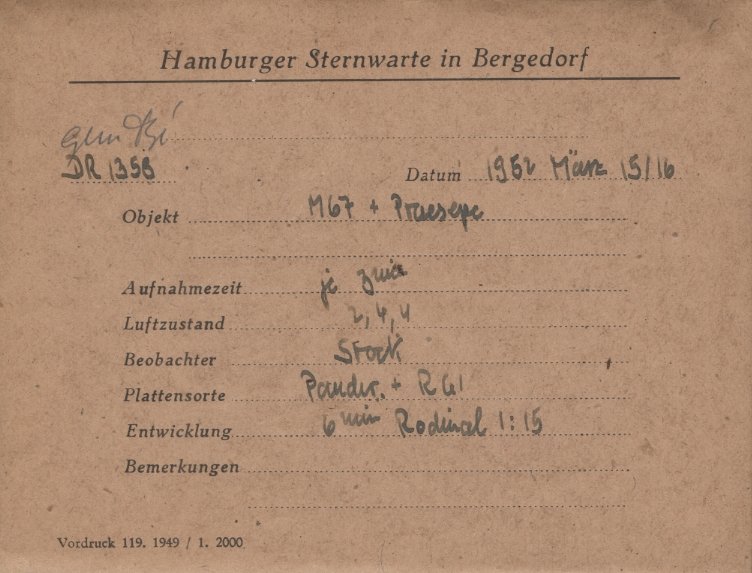 Hamburger Sternwarte in Bergedorf
DR 1356 Datum 1952 März 15/16
Objekt M67 + Praesepe
Aufnahmezeit je
Luftzustand 2, 4, 4
Beobachter Stock
Plattensorte + RG1
Entwicklung 6 min Rodinal 1:15
Bemerkungen
Vordruck 119. 1949 / 1. 2000